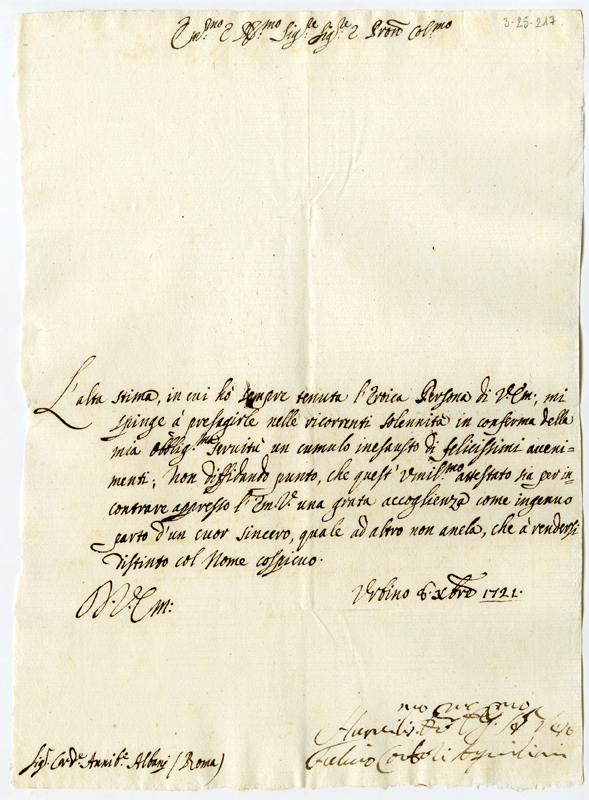 3-25-217
Em.mo e R.mo Sig.re Sig.re e Pron Col.mo
L'alta stima, in cui hò sempre tenuta l'Eroica Persona di V.Em:, mi
spinge à presagirle nelle ricorrenti solennità in conferma della
mia obblig.ma servitù un cumulo inesausto di felicissimi aveni-
menti; Non diffidando punto, che quest'umil.mo attestato sia per in=
contrare appresso l'Em.V. una grata accoglienza come ingenuo
parto d'un cuor sincero, quale ad altro non anela, che à rendersi
distinto col Nome cospicuo.
D.V.Em:
Urbino 6. Xbre 1721.
Sig.r Card.e Annib.e Albani (Roma)
Corboli Aquilini